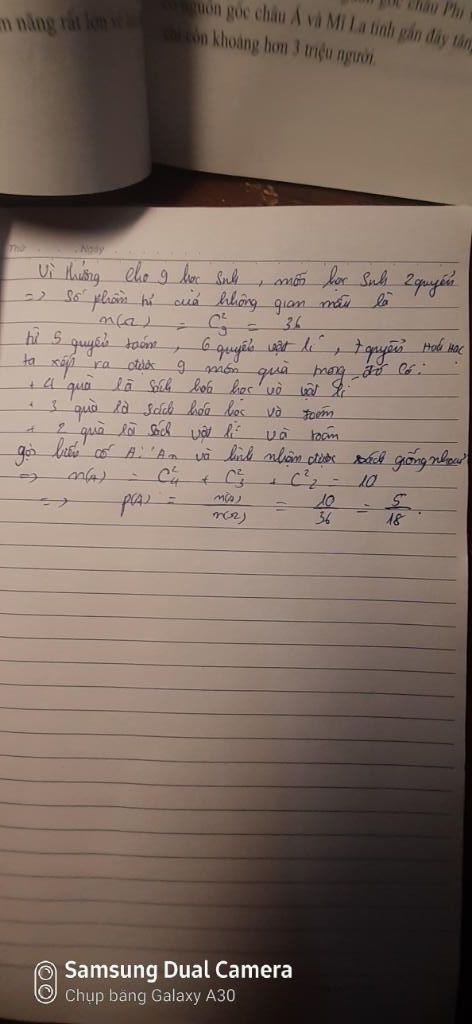 m năng rất lớn về
có nguồn gốc châu Á và Mĩ La tinh gần đây tăng
chỉ còn khoảng hơn 3 triệu người.
Thứ Ngày
Vì thưởng cho 9 học sinh, mỗi học sinh 2 quyển
=> số phần tử của không gian mẫu là
n(Ω) = C²₉ = 36
từ 5 quyển toán, 6 quyển vật lí, 7 quyển Hoá học
ta xếp ra được 9 món quà trong đó có:
+ 4 quà là sách hóa học và vật lí
+ 3 quà là sách hóa học và toán
+ 2 quà là sách vật lí và toán
gọi biến cố A: An và bình nhận được sách giống nhau
=> n(A) = C²₄ + C²₃ + C²₂ = 10
=> P(A) = n(A)/n(Ω) = 10/36 = 5/18.
Samsung Dual Camera
Chụp bằng Galaxy A30